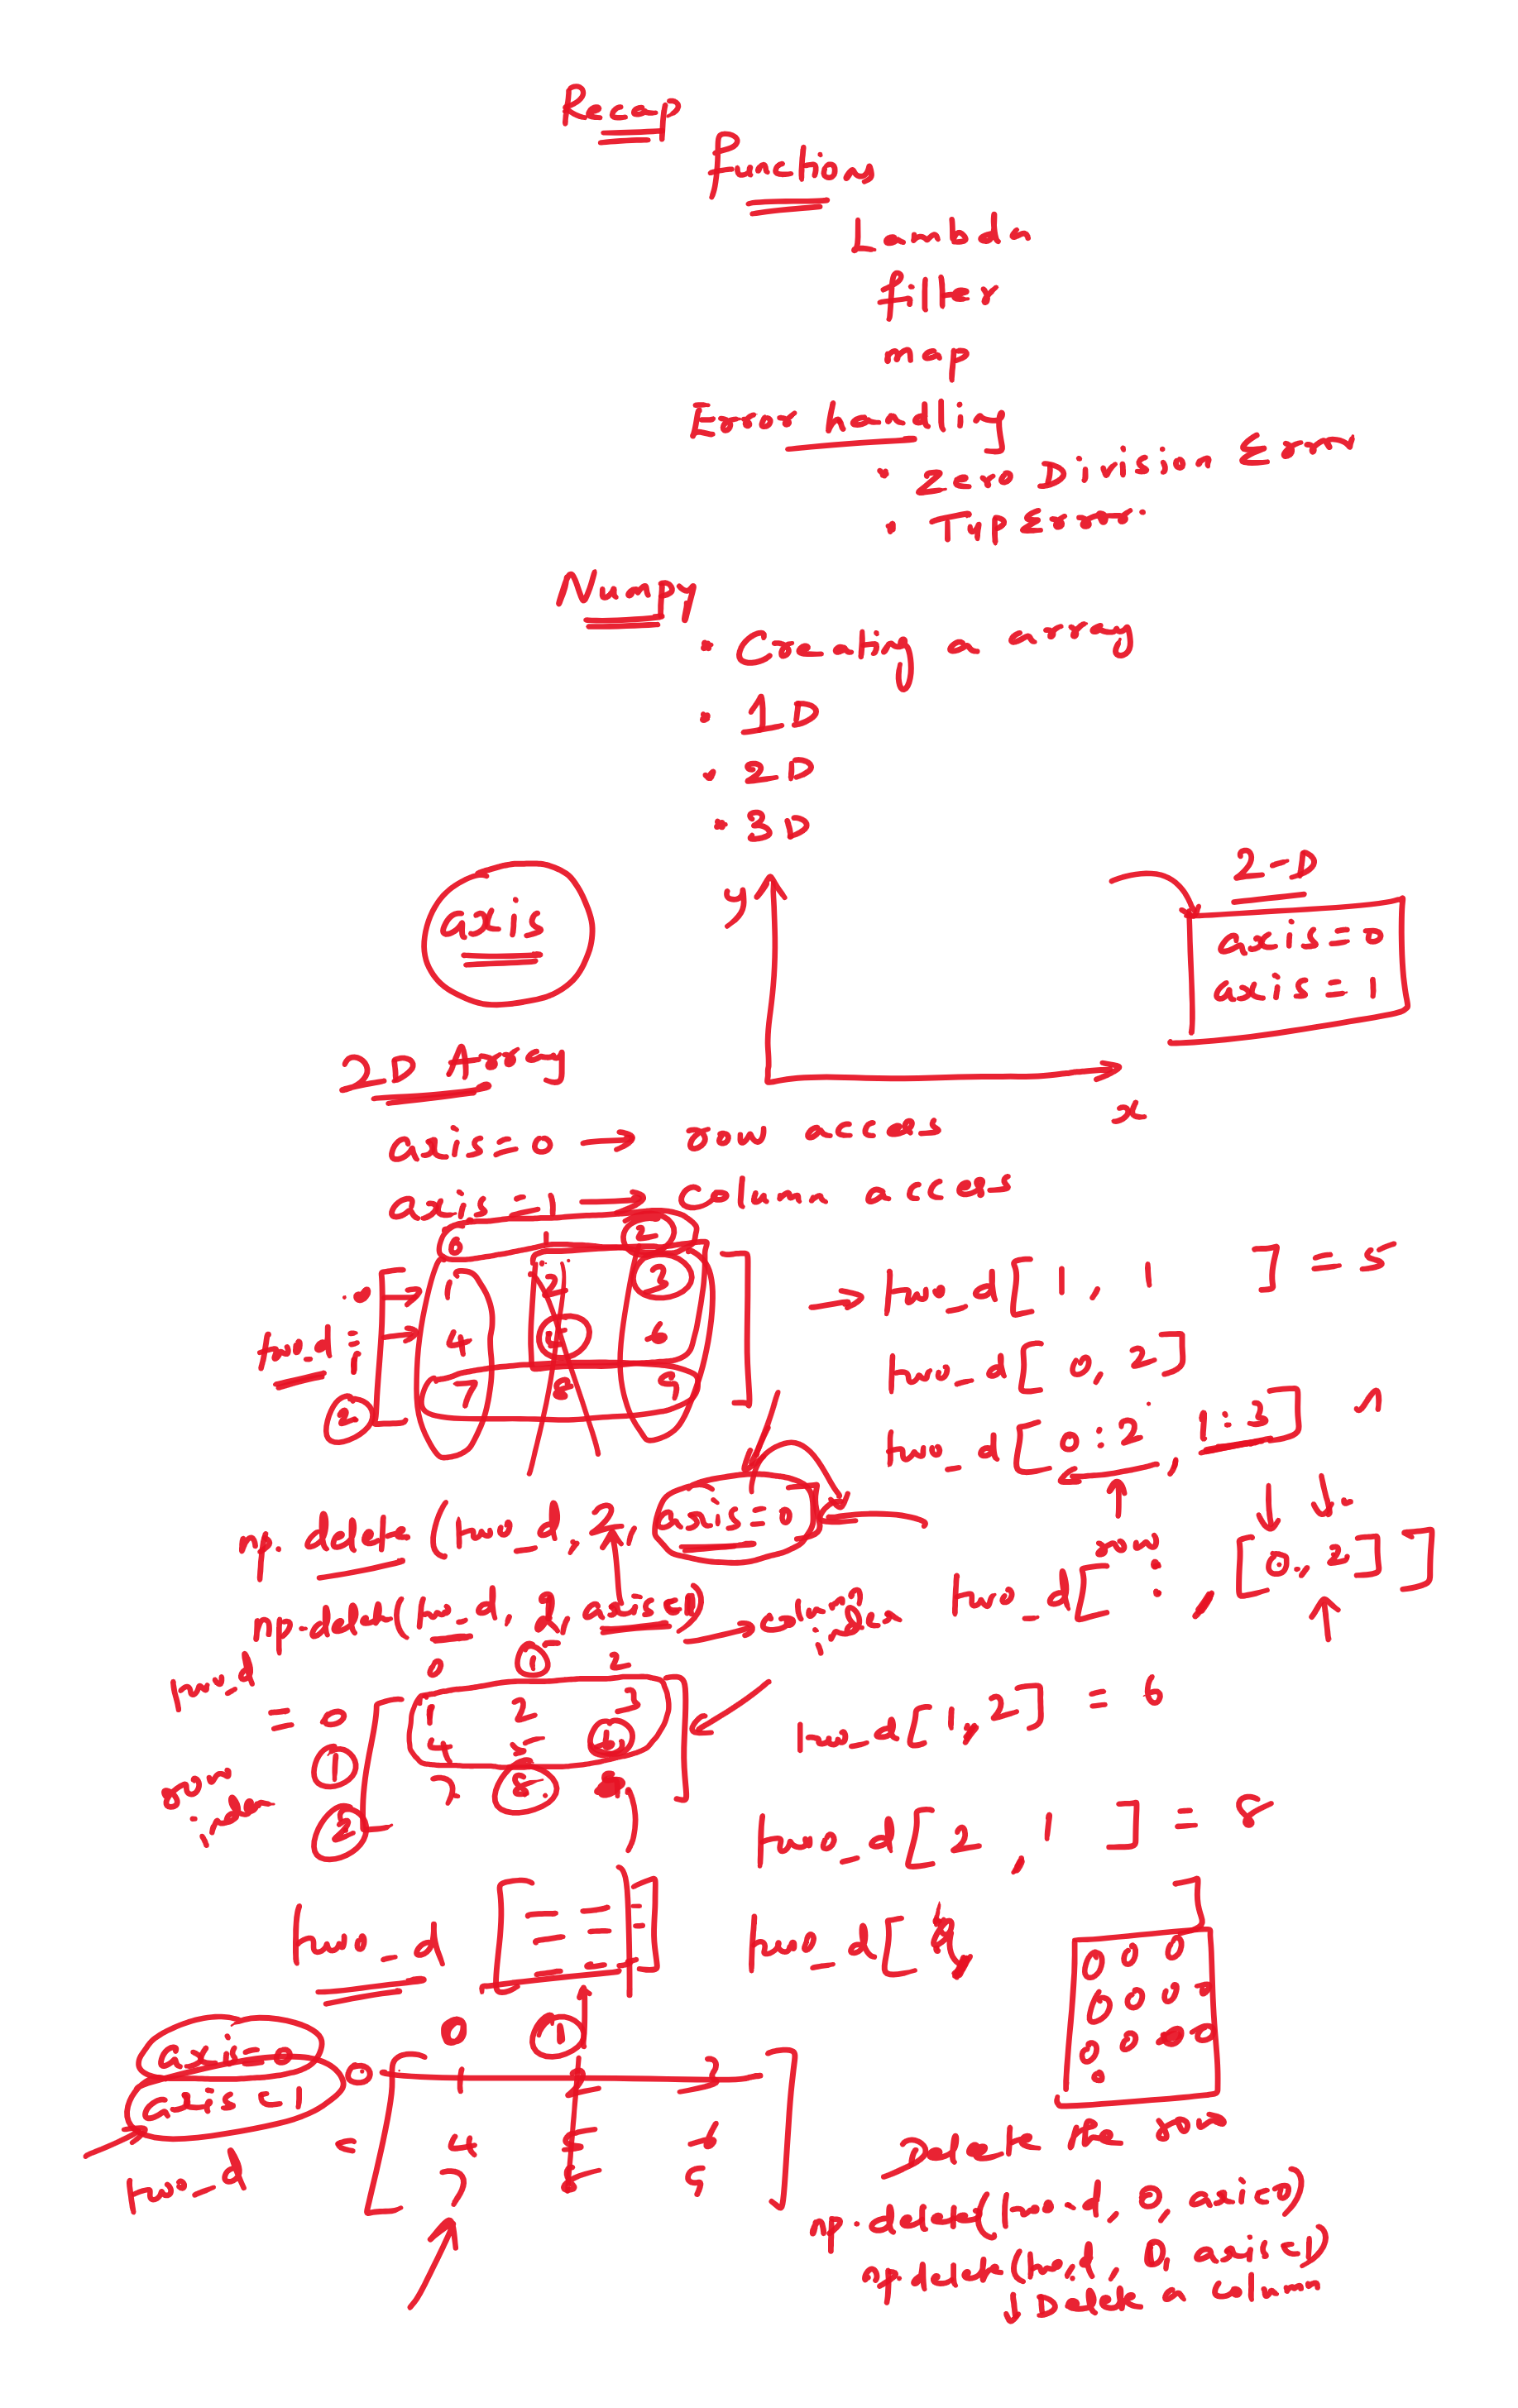 Recap
Functions
Lambda
filter
map
Error handling
• Zero Division Error
• Typ Error.
Numpy
• Creating a array
• 1D
• 2D
• 3D
axis
y
x
2-D
axis=0
axis=1
2D Array
axis=0 → row access
axis=1 → Column access
0 1 2
0 1 2 3
two_d = 1 4 5 6
2 7 8 9
→ two_d[1, 1] = 5
two_d[0, 2]
two_d[0:2, 1:3]
row
two_d[:, [0, 2]]
np. delete (two_d, 2, axis=0)
np.delete(two_d, 2, axis=1) → column index
0 1 2
two_d = 0 1 2 3
1 4 5 6
2 7 8
row index
two_d[1, 2] = 6
two_d[2, 1] = 8
two_d
two_d[
0 0 0
0 0 0
0 0
0
axis=0
axis=1
0 1
0 1 2 3
two_d = 4 5 6
7 8 9
Delete the row
np.delete(two_d, 0, axis=0)
np.delete(two_d, 0, axis=1)
↓ Delete a column